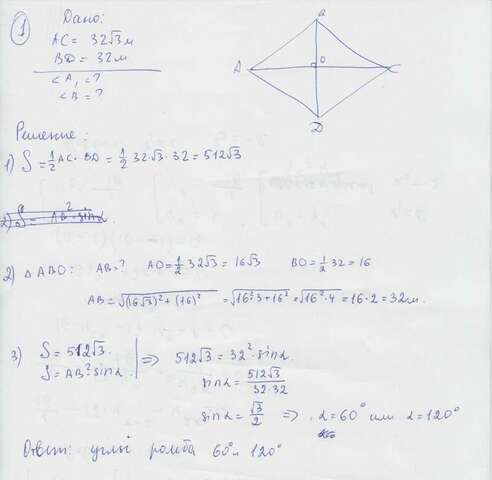 1
Дано:
AC = 32√3 м
BD = 32 м
∠A, = ?
∠B = ?
B
A
O
C
D
Решение:
1) S = 1/2 AC · BD = 1/2 32·√3 · 32 = 512√3
2) S = AB² · sin α.
2) △ ABO: AB = ? AO = 1/2 32√3 = 16√3 BO = 1/2 32 = 16
AB = √(16√3)² + (16)² = √16²·3 + 16² = √16²·4 = 16·2 = 32 м.
3) S = 512√3.
S = AB² · sin α.
⟹ 512√3 = 32² · sin α
sin α = 512√3/32·32
sin α = √3/2 ⟹ α = 60° или α = 120°
Ответ: углы ромба 60° и 120°